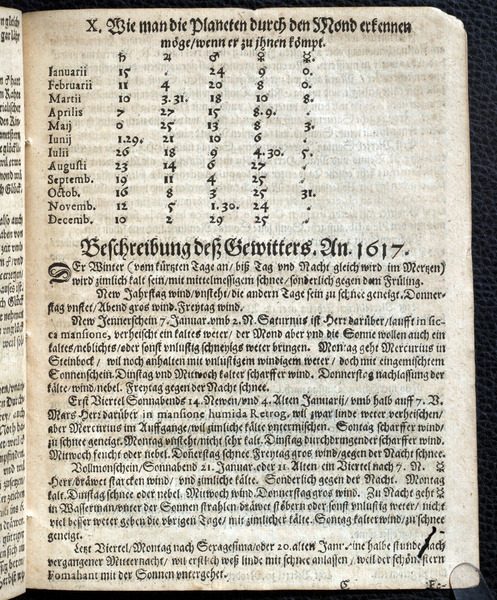 X. Wie man die Planeten durch den Mond erkennen
möge/wenn er zu jhnen kömpt.
♄ ♃ ♂ ♀ ☿.
Ianuarii 15 . 24 9 0.
Februarii 11 4 20 8 0.
Martii 10 3.31. 18 10 8.
Aprilis 7 27 15 8.9. .
Maij 0 25 13 8 3.
Iunij 1.29. 21 10 6 .
Iulii 26 18 9 4.30. 5.
Augusti 23 14 6 27 .
Septemb. 19 11 4 25 .
Octob. 16 8 3 25 31.
Novemb. 12 5 1.30. 24 .
Decemb. 10 2 29 25 .
Beschreibung deß Gewitters. An. 1617.
DEr Winter (vom kürtzten Tage an/ biß Tag vnd Nacht gleich wird im Mertzen)
wird zimlich kalt sein/ mit mittelmessigem schnee/ sonderlich gegen dem Früling.
New Jahrstag wind/ vnsteht/ die andern Tage sein zu schnee geneigt. Donner-
stag vnstet/ Abend gros wind. Freytag wind.
New Jennerschein 7. Januar. vmb 2. N. Saturnus ist Herr darüber/ laufft in sic-
ca mansione, verheischt ein kaltes weter/ der Mond aber vnd die Sonne wollen auch ein
kaltes/ neblichts/ oder sonst vnlustig schneyigs weter bringen. Montag geht Mercurius in
Steinbock/ wil noch anhalten mit vnlustigem windigem weter/ doch mit eingemischtem
Sonnenschein. Dinstag vnd Mitwoch kalter scharffer wind. Donnerstag nachlassung der
kälte/ wind/ nebel. Freytag gegen der Nacht schnee.
Erst Viertel Sonnabends 14. Newen/ vnd 4. Alten Januarij/ vmb halb auff 7. V.
Mars Herr darüber in mansione humida Retrog. wil zwar linde weter verheischen/
aber Mercurius im Auffgange/ wil zimliche kälte vntermischen. Sontag scharffer wind/
zu schnee geneigt. Montag vnsteht/ nicht sehr kalt. Dinstag durchdringender scharffer wind.
Mitwoch feucht oder nebel. Donerstag schnee Freytag gros wind/ gegen der Nacht schnee.
Vollmonschein/ Sonnabend 21. Januar. oder 11. Alten/ ein Viertel nach 7. N. ☿
Herr/ dräwet starcken wind/ vnd zimliche kälte. Sonderlich gegen der Nacht. Montag
kalt. Dinstag schnee oder nebel. Mitwoch wind. Donnerstag gros wind. Zu Nacht geht ☿
in Wasserman/ vnter der Sonnen strahlen/ dräwet stöbern oder sonst vnlustig weter/ nicht
viel besser weter geben die vbrigen Tage/ mit zimlicher kälte. Sontag kalter wind/ zu schnee
geneiget.
Letzt Viertel/ Montag nach Sexagesima/ oder 20. alten Janr. eine halbe stunde nach
vergangener Mitternacht/ wil erstlich weß linde mit schnee anlassen/ weil der schön stern
Fomahant mit der Sonnen vntergehet.
C